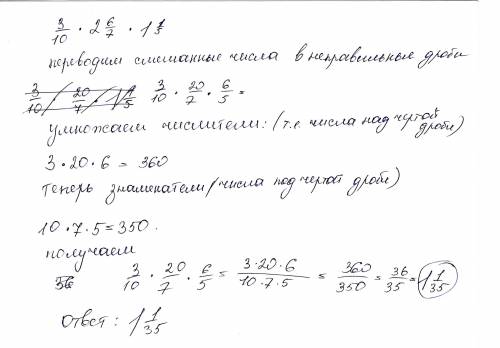 3/10 · 2 6/7 · 1 1/5
переводим смешанные числа в неправильные дроби
3/10 · 20/7 · 6/5 =
умножаем числители: (т.е. числа над чертой дроби)
3 · 20 · 6 = 360
теперь знаменатели (числа под чертой дроби)
10 · 7 · 5 = 350.
получаем
36 3/10 · 20/7 · 6/5 = 3·20·6/10·7·5 = 360/350 = 36/35 = 1 1/35
ответ: 1 1/35